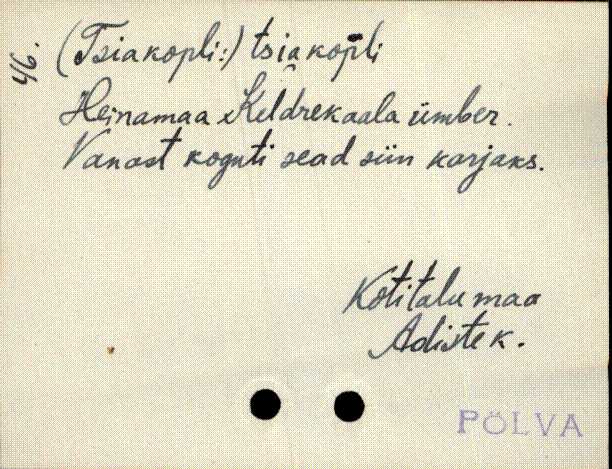 46.
(Tsiakopli:) tsiakop̄li
Heinamaa Keldrekaala ümber.
Vanast koguti sead siin karjaks.
Kotitalu maa
Adiste k.
PÕLVA